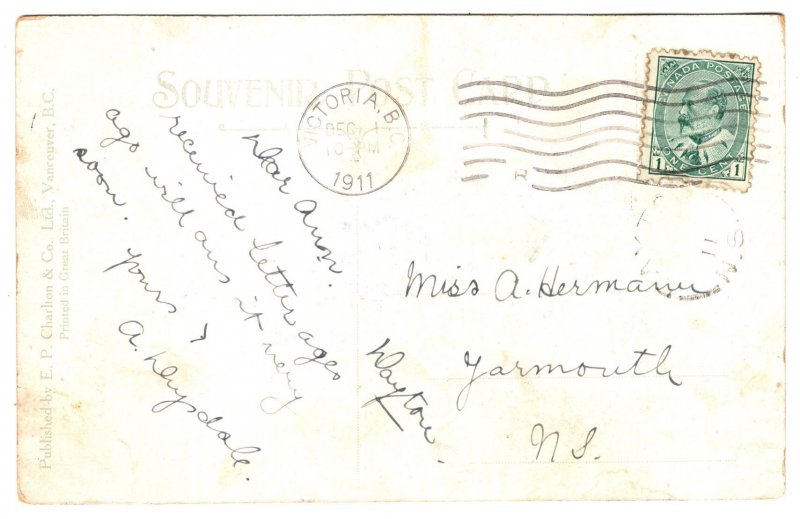 SOUVENIR POST CARD
VICTORIA, B.C.
DEC 1
10-PM
1911
R
CANADA POSTAGE
1 ONE CENT 1
11
N.S.
Dear Ann.
received letter ages
ago will ans it very
soon. yours
A. Drysdale.
Miss A. Hermann
Yarmouth
N.S.
Dayton.
Published by E. P. Charlton & Co. Ltd., Vancouver, B.C.
Printed in Great Britain